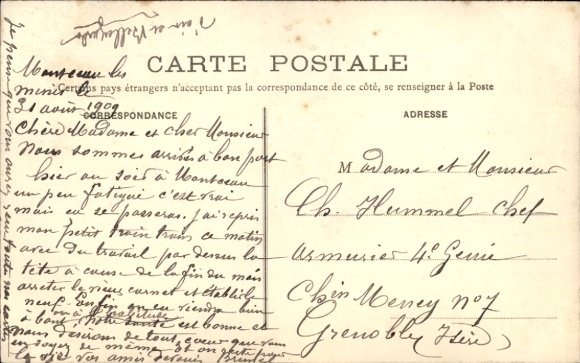 CARTE POSTALE
Certains pays étrangers n'acceptant pas la correspondance de ce côté, se renseigner à la Poste
CORRESPONDANCE
ADRESSE
Montceau les
mines le
31 août 1909
Chère Madame et Cher Monsieur
Nous sommes arrivés à bon port
hier au soir à Montceau
un peu fatigué c'est vrai
mais ça se passeras. j'ai repris
mon petit train train ce matin
avec du travail par dessus la
tête à cause de la fin du mois
arreter le vieux carnet et établir le
neuf. Enfin on en viendra bien
à bout, notre santé est bonne et
comme d'habitude
nous désirons de tout coeur que
de même
vos amis
Madame et Monsieur
Ch. Hummel chef
armurier 4e Genie
Chin Meney no 7
Grenoble (Isère)
Je pense que vous avez reçu toutes nos cartes